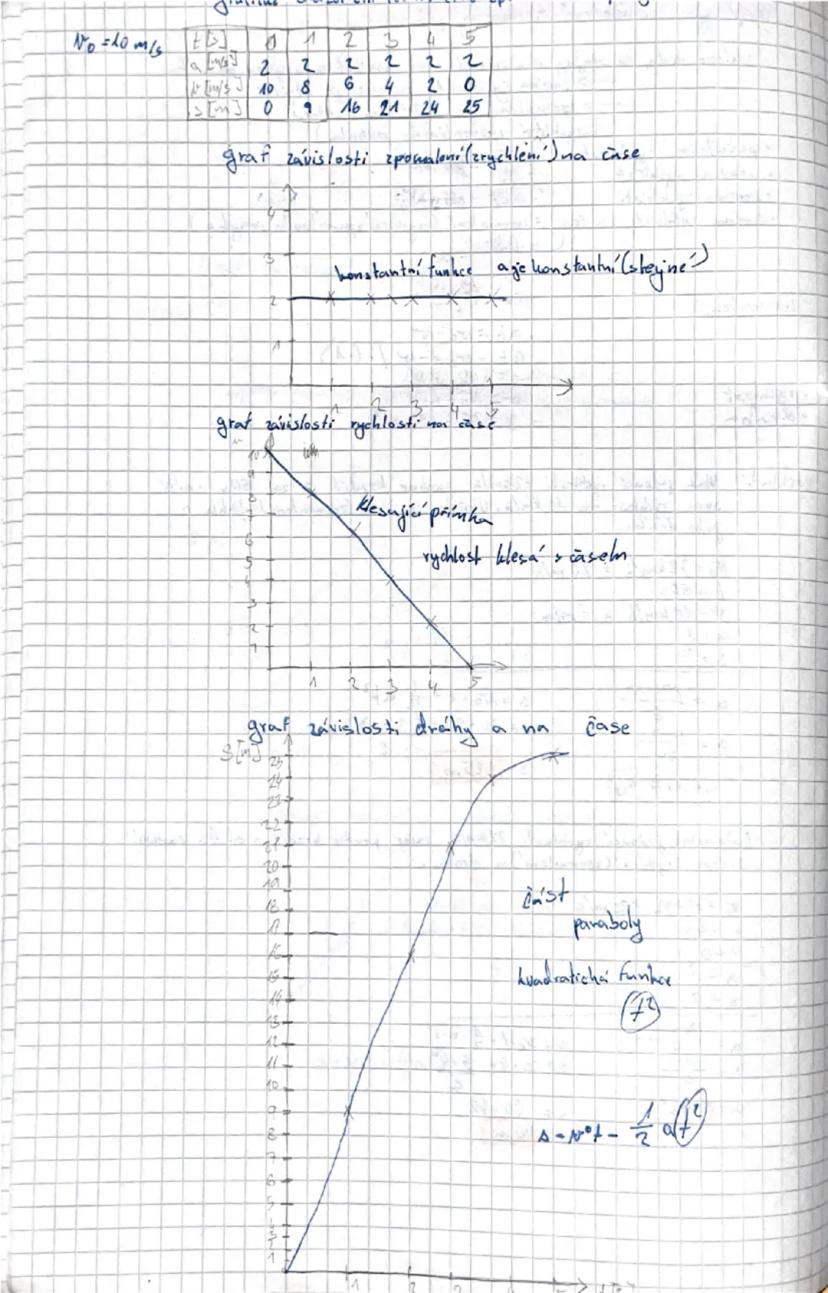 v₀ = 10 m/s
t[s] 0 1 2 3 4 5
a[m/s²] 2 2 2 2 2 2
v[m/s] 10 8 6 4 2 0
s[m] 0 9 16 21 24 25
graf závislosti zpomalení (zrychlení) na čase
4
3
konstantní funkce a je konstantní (stejné)
2
1
1 2 3 4 5
graf závislosti rychlosti na čase
v
10
9
8
7
klesající přímka
6
rychlost klesá s časem
5
4
3
2
1
1 2 3 4 5
graf závislosti dráhy a na čase
s[m]
25
24
23
22
21
20
19
část
18
paraboly
17
16
kvadratichá funkce
15
t²
14
13
12
11
10
9
s = v⁰t - 1/2 at²
8
7
6
5
4
3
2
1
1 2 3 4